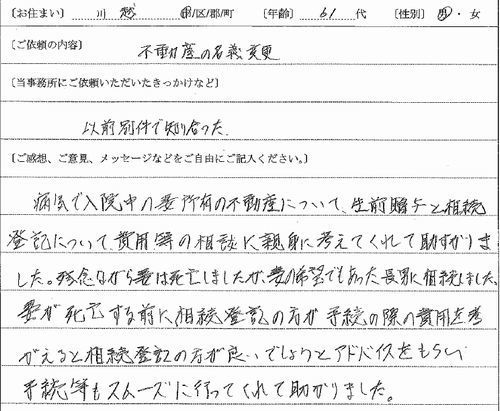 〔お住まい〕 川越 市/区/郡/町 〔年齢〕 61 代 〔性別〕 男・女
〔ご依頼の内容〕 不動産の名義変更
〔当事務所にご依頼いただいたきっかけなど〕
以前別件で知り合った
〔ご感想、ご意見、メッセージなどをご自由にご記入ください。〕
病気で入院中の妻所有の不動産について、生前贈与と相続
登記について、費用等の相談に親身に考えてくれて助すかりま
した。残念ながら妻は死亡しましたが、妻の希望でもあった長男に相続しました。
妻が死亡する前に相続登記の方が手続の際の費用を考
がえると相続登記の方が良いでしょうとアドバイスをもらい
手続等もスムーズに行ってくれて助かりました。